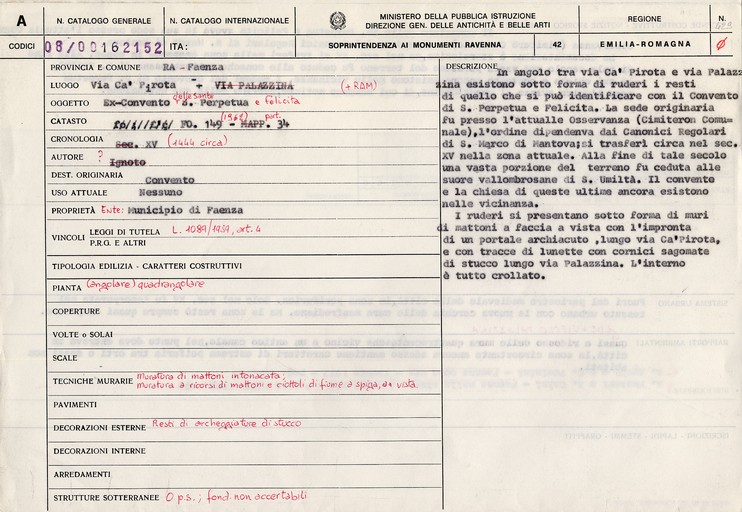 A
N. CATALOGO GENERALE
N. CATALOGO INTERNAZIONALE
MINISTERO DELLA PUBBLICA ISTRUZIONE
DIREZIONE GEN. DELLE ANTICHITÀ E BELLE ARTI
REGIONE
N.
CODICI
08/00162152
ITA:
SOPRINTENDENZA AI MONUMENTI RAVENNA
42
EMILIA-ROMAGNA
PROVINCIA E COMUNE RA - Faenza
LUOGO Via Ca' Pirota + VIA PALAZZINA (+ RAM)
OGGETTO Ex-Convento delle Sante S. Perpetua e felicita
CATASTO FO. 149 - MAPP. 34
CRONOLOGIA Sec. XV (1444 circa)
AUTORE ? Ignoto
DEST. ORIGINARIA Convento
USO ATTUALE Nessuno
PROPRIETÀ Ente: Municipio di Faenza
VINCOLI
LEGGI DI TUTELA L. 1089/1939, art. 4
P.R.G. E ALTRI
TIPOLOGIA EDILIZIA - CARATTERI COSTRUTTIVI
PIANTA (angolare) quadrangolare
COPERTURE
VOLTE o SOLAI
SCALE
TECNICHE MURARIE muratura di mattoni intonacata;
muratura a ricorsi di mattoni e ciottoli di fiume a spiga, a vista.
PAVIMENTI
DECORAZIONI ESTERNE Resti di archeggiature di stucco
DECORAZIONI INTERNE
ARREDAMENTI
STRUTTURE SOTTERRANEE O p.s.; fond. non accertabili
DESCRIZIONE
In angolo tra via Ca' Pirota e via Palaz=
zina esistono sotto forma di ruderi i resti
di quello che si può identificare con il Convento
di S. Perpetua e Felicita. La sede originaria
fu presso l'attualle Osservanza (Cimiteron Comu=
nale),l'ordine dipendenva dai Canonici Regolari
di S. Marco di Mantova;si trasferì circa nel sec.
XV nella zona attuale. Alla fine di tale secolo
una vasta porzione del terreno fu ceduta alle
suore vallombrosane di S. Umiltà. Il convento
e la chiesa di queste ultime ancora esistono
nelle vicinanza.
I ruderi si presentano sotto forma di muri
di mattoni a faccia a vista con l'impronta
di un portale archiacuto ,lungo via Ca'Pirota,
e con tracce di lunette con cornici sagomate
di stucco lungo via Palazzina. L'interno
è tutto crollato.